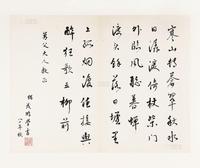 寒山轉蒼翠秋水
日潺湲倚杖柴門
外臨風聽暮蟬
渡頭餘落日墟里
上孤烟復值接輿
醉狂歌五柳前
父大人教正
學書